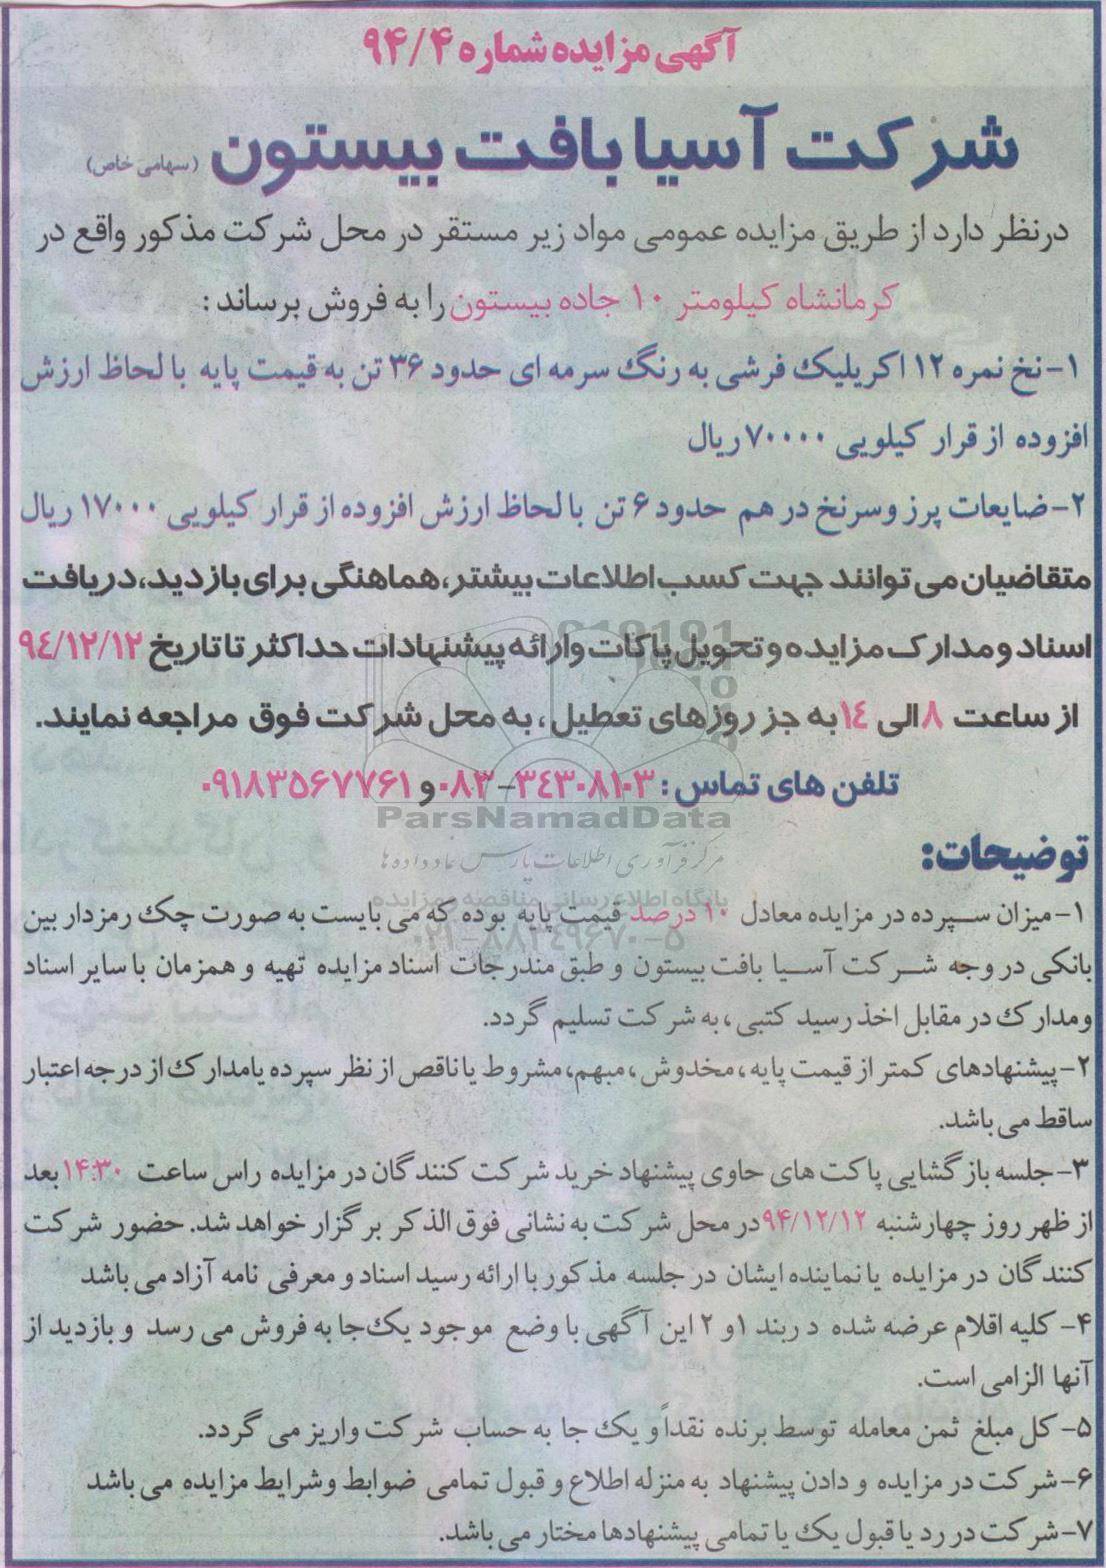 آگهی مزایده شماره ۹۴/۴
شرکت آسیا بافت بیستون (سهامی خاص)
درنظر دارد از طریق مزایده عمومی مواد زیر مستقر در محل شرکت مذکور واقع در
کرمانشاه کیلومتر ۱۰ جاده بیستون را به فروش برساند :
۱-نخ نمره ۱۲ اکریلیک فرشی به رنگ سرمه ای حدود ۳۶ تن به قیمت پایه با لحاظ ارزش
افزوده از قرار کیلویی ۷۰۰۰۰ ریال
۲-ضایعات پرز و سرنخ در هم حدود ۶ تن با لحاظ ارزش افزوده از قرار کیلویی ۱۷۰۰۰ ریال
متقاضیان می توانند جهت کسب اطلاعات بیشتر، هماهنگی برای بازدید، دریافت
اسناد و مدارک مزایده و تحویل پاکات و ارائه پیشنهادات حداکثر تا تاریخ ۹٤/۱۲/۱۲
از ساعت ۸ الی ۱٤ به جز روزهای تعطیل ، به محل شرکت فوق مراجعه نمایند.
تلفن های تماس : ۰۸۳-۳٤۳۰۸۱۰۳ و ۰۹۱۸۳۵۶۷۷۶۱
ParsNamadData
مرکز فرآوری اطلاعات پارس نماد داده ها
پایگاه اطلاع رسانی مناقصه و مزایده
۰۲۱-۸۸۳٤۹۶۷۰-۵
توضیحات:
۱-میزان سپرده در مزایده معادل ۱۰ درصد قیمت پایه بوده که می بایست به صورت چک رمزدار بین
بانکی در وجه شرکت آسیا بافت بیستون و طبق مندرجات اسناد مزایده تهیه و همزمان با سایر اسناد
و مدارک در مقابل اخذ رسید کتبی ، به شرکت تسلیم گردد.
۲-پیشنهادهای کمتر از قیمت پایه ، مخدوش ، مبهم، مشروط یا ناقص از نظر سپرده یا مدارک از درجه اعتبار
ساقط می باشد.
۳-جلسه بازگشایی پاکت های حاوی پیشنهاد خرید شرکت کنندگان در مزایده راس ساعت ۱۴:۳۰ بعد
از ظهر روز چهارشنبه ۹۴/۱۲/۱۲ در محل شرکت به نشانی فوق الذکر برگزار خواهد شد. حضور شرکت
کنندگان در مزایده یا نماینده ایشان در جلسه مذکور با ارائه رسید اسناد و معرفی نامه آزاد می باشد
۴- کلیه اقلام عرضه شده در بند ۱ و ۲ این آگهی با وضع موجود یک جا به فروش می رسد و بازدید از
آنها الزامی است.
۵- کل مبلغ ثمن معامله توسط برنده نقداً و یک جا به حساب شرکت واریز می گردد.
۶-شرکت در مزایده و دادن پیشنهاد به منزله اطلاع و قبول تمامی ضوابط و شرایط مزایده می باشد
۷-شرکت در رد یا قبول یک یا تمامی پیشنهادها مختار می باشد.